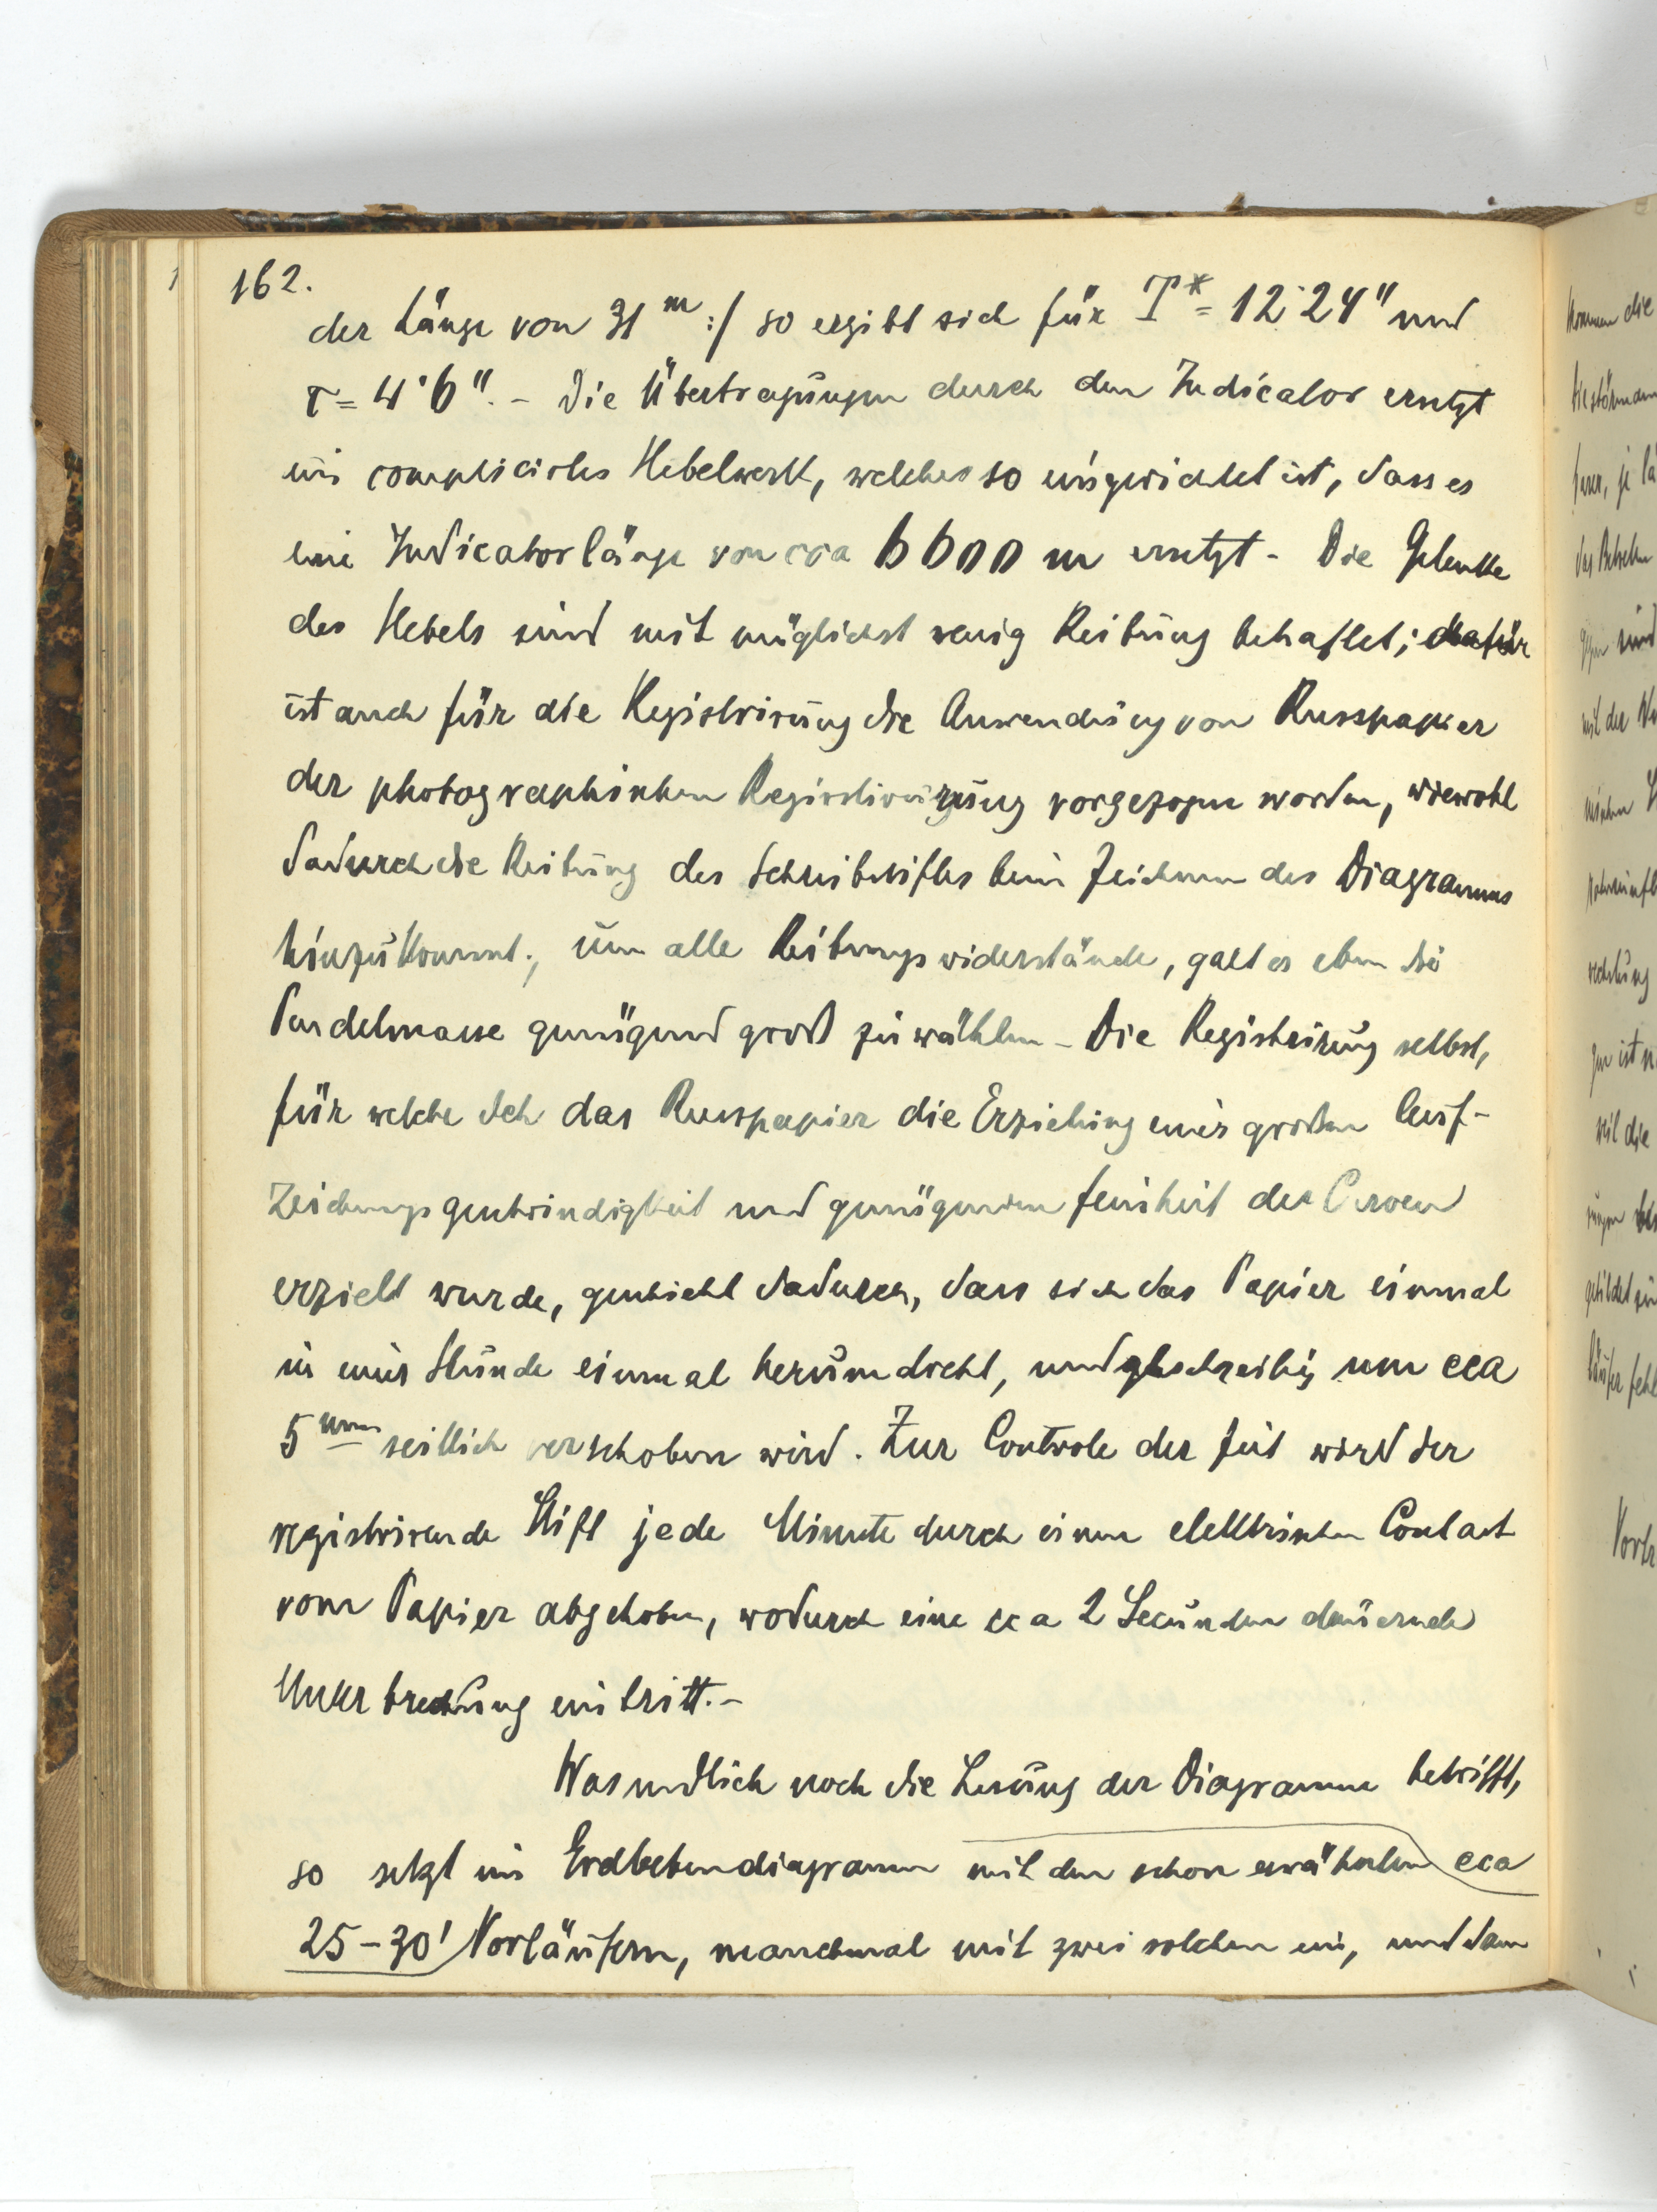 162.
der Länge von 31 m :/ so ergibt sich für T* = 12·24" und
τ = 4·6". – Die Übertragungen durch den Indicator ersetzt
ein complicirtes Hebelwerk, welches so eingerichtet ist, dass es
eine Indicatorlänge von cca 6600 m ersetzt – Die Gelenke
des Hebels sind mit möglichst wenig Reibung behaftet; dafür
ist auch für die Registrirung die Anwendung von Russpapier
der photographischen Registrirung vorgezogen worden, wiewohl
dadurch die Reibung des Schreibstiftes beim Zeichnen des Diagramms
hinzukommt; um alle Reibungswiderstände, galt es eben die
Pendelmasse genügend groß zu wählen – Die Registrirung selbst,
für welche sich das Russpapier die Erziehung einer großen Auf-
zeichnungsgeschwindigkeit und genügenden Feinheit der Curven
erzielt wurde, geschieht dadurch, dass sich das Papier einmal
in einer Stunde einmal herumdreht, und um cca
5 mm seitlich verschoben wird. Zur Controle der Zeit wird der
registrirende Stift jede Minute durch einen elektrischen Contact
vom Papier abgehoben, wodurch eine cca 2 Secunden dauernde
Unterbrechung eintritt. –
Was endlich noch die Lesung der Diagramme betrifft,
so setzt ein Erdbebendiagramm mit den schon erwähnten cca
25–30' Vorläufern, manchmal mit zwei solchen ein, und dann
kommen die
das Beben
sind
mit der
rechnung
ist
weil die